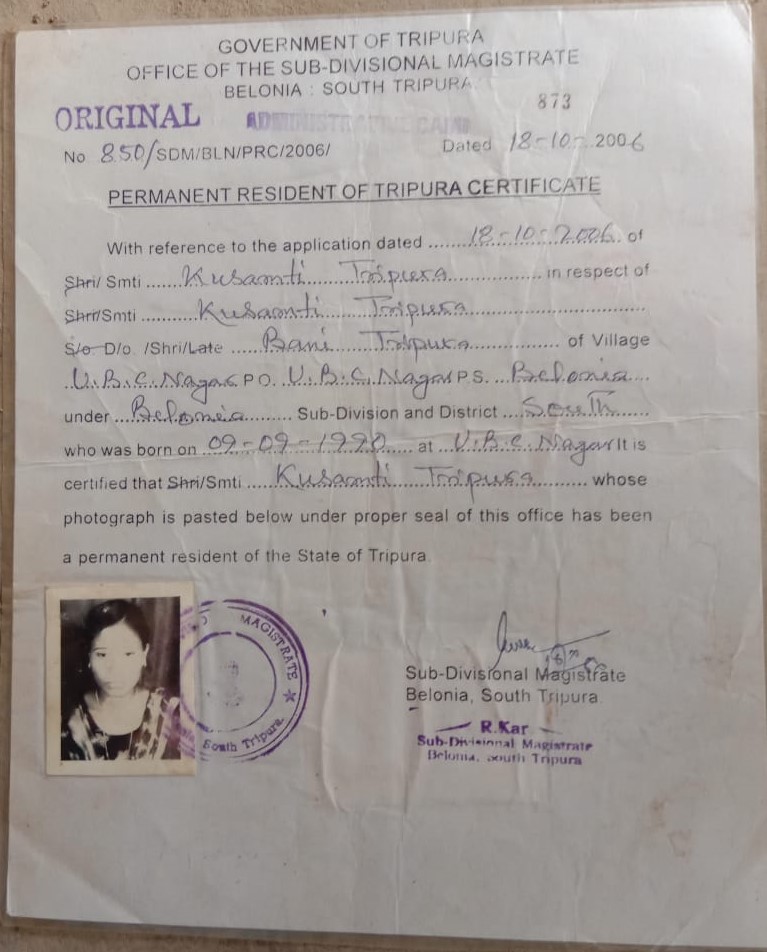 GOVERNMENT OF TRIPURA
OFFICE OF THE SUB-DIVISIONAL MAGISTRATE
BELONIA : SOUTH TRIPURA.
873
ORIGINAL ADMINISTRATIVE CAMP
No 850/SDM/BLN/PRC/2006/ Dated 18-10-2006
PERMANENT RESIDENT OF TRIPURA CERTIFICATE
With reference to the application dated ......18-10-2006. of
Shri/ Smti ......Kusamti Tripura............... in respect of
Shri/Smti ..........Kusamti Tripura..............................
S/o. D/o. /Shri/Late ....Bani Tripura............... of Village
.U.B.C. Nagar PO. U.B.C. Nagar P.S. ..Belonia...
under ..Belonia........ Sub-Division and District ....South.....
who was born on 09-09-1990.... at ..U.B.C. Nagar It is
certified that Shri/Smti .....Kusamti Tripura......... whose
photograph is pasted below under proper seal of this office has been
a permanent resident of the State of Tripura.
MAGISTRATE ★
South Tripura.
Sub-Divisional Magistrate
Belonia, South Tripura.
R.Kar
Sub-Divisional Magistrate
Belonia, South Tripura